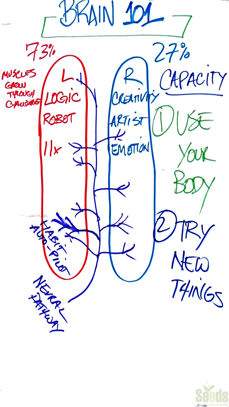 BRAIN 101
73%
27%
MUSCLES
GROW
THROUGH
CHALLENGE
L
LOGIC
ROBOT
11x
HABIT
AUTO-PILOT
NEURAL
PATHWAY
R
CREATIVITY
ARTIST
EMOTION
CAPACITY
1 USE
YOUR
BODY
2 TRY
NEW
THINGS
Seeds